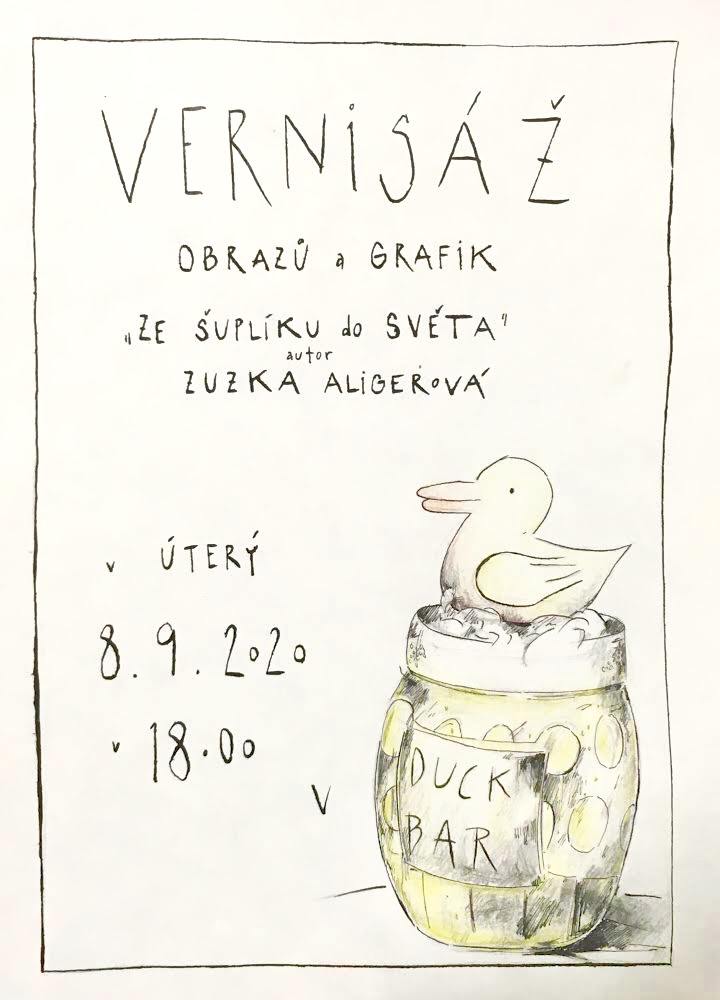 VERNiSÁŽ
OBRAZŮ a GRAFiK
„ZE ŠUPLÍKU do SVĚTA"
autor
ZUZKA ALiGEROVÁ
v ÚTERÝ
8.9.2020
v 18.00
V
DUCK
BAR